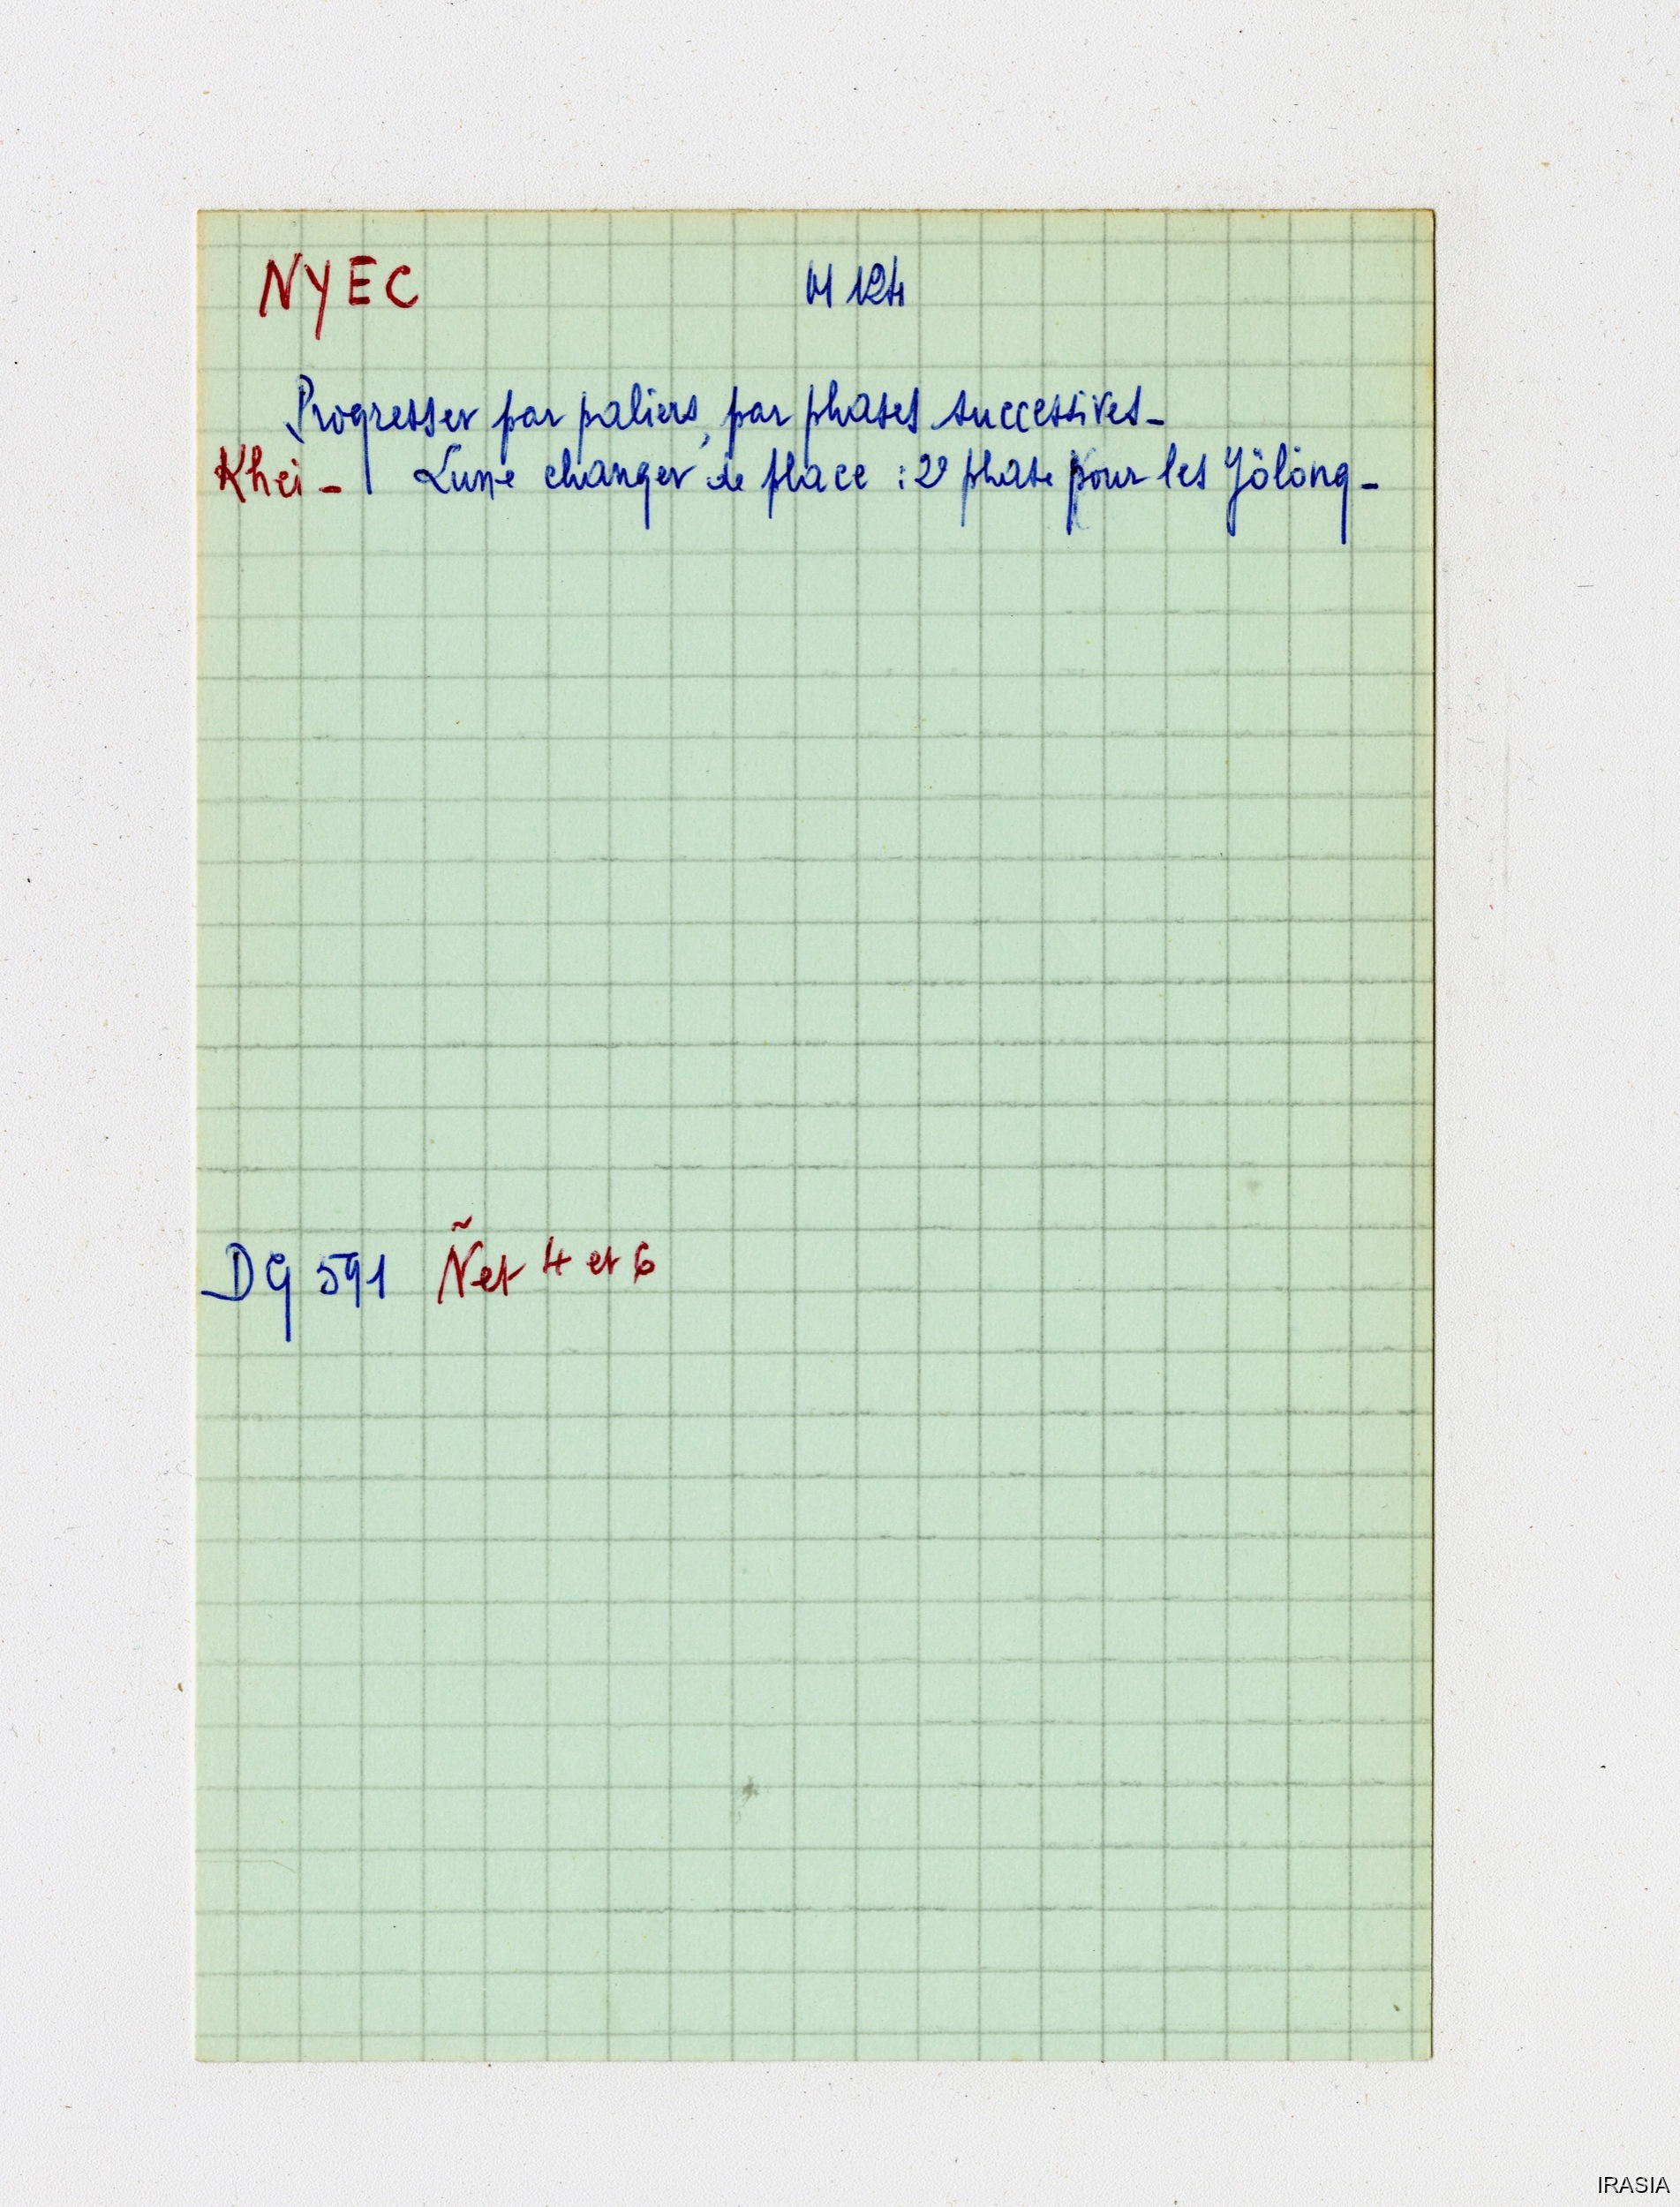 NYEC M 124
Progresser par paliers, par phases successives_
Khei_ | Lune changer de place : 2e phase pour les Jölöng_
DG 591 Ñet 4 et 6
IRASIA